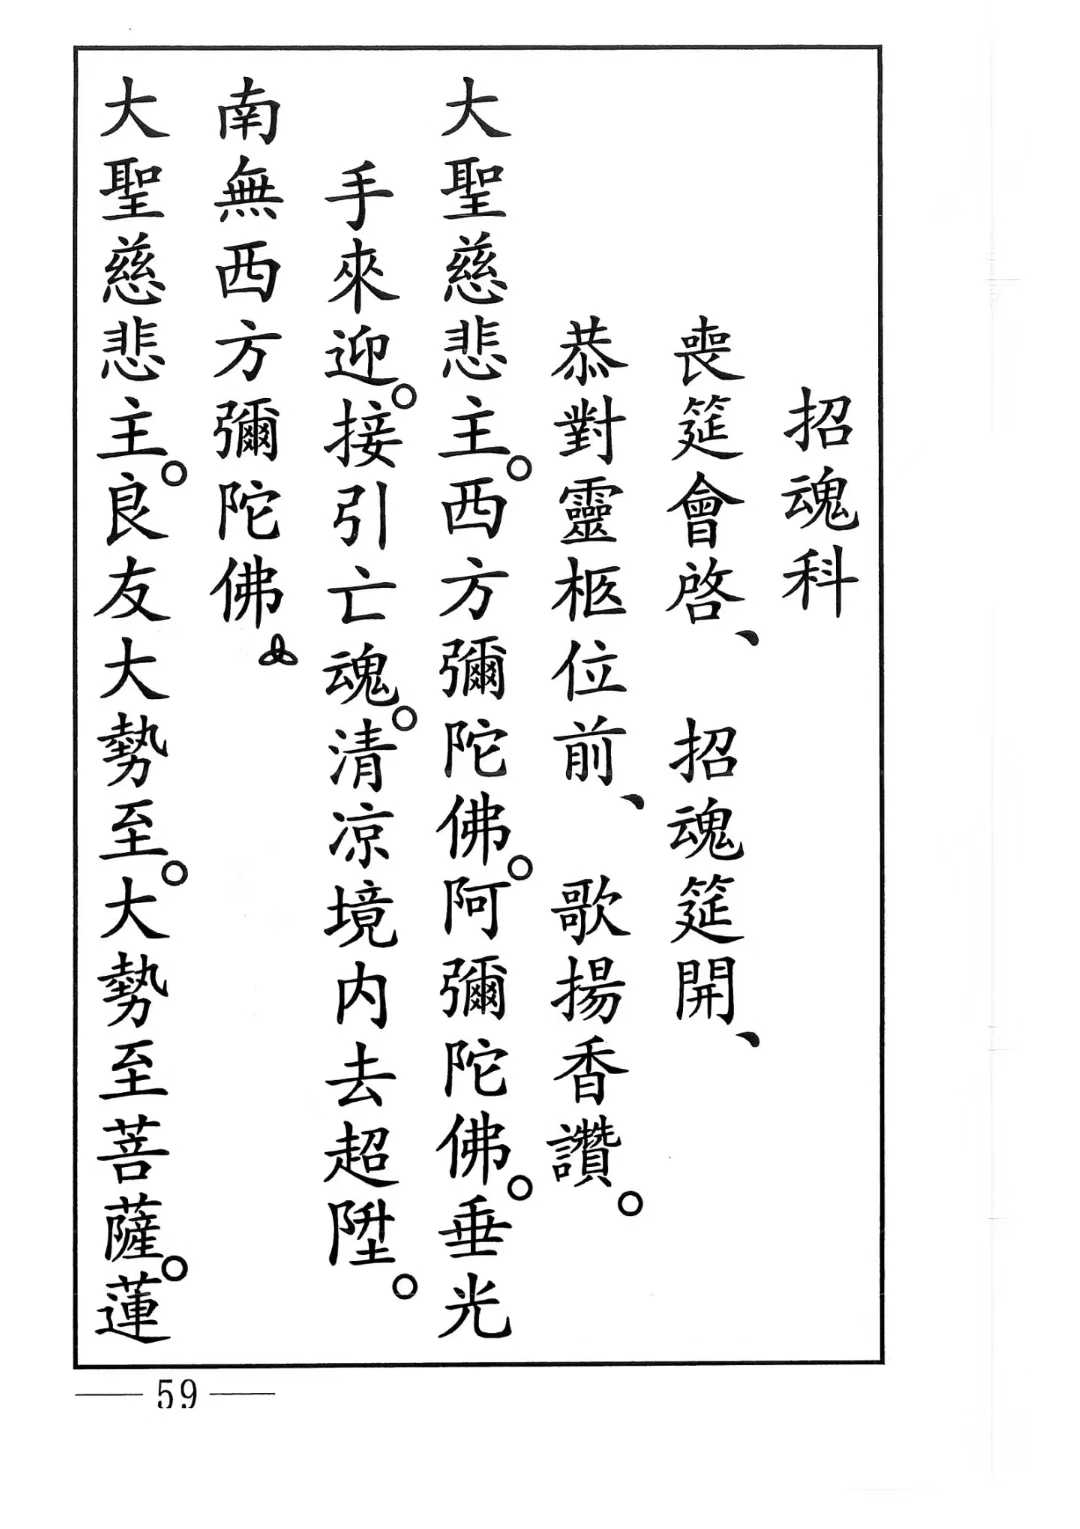 招魂科
喪筵會啓、 招魂筵開、
恭對靈柩位前、 歌揚香讚。
大聖慈悲主。西方彌陀佛。阿彌陀佛。垂光
手來迎。接引亡魂。清凉境内去超陞。
南無西方彌陀佛。
大聖慈悲主。良友大勢至。大勢至菩薩。蓮
59